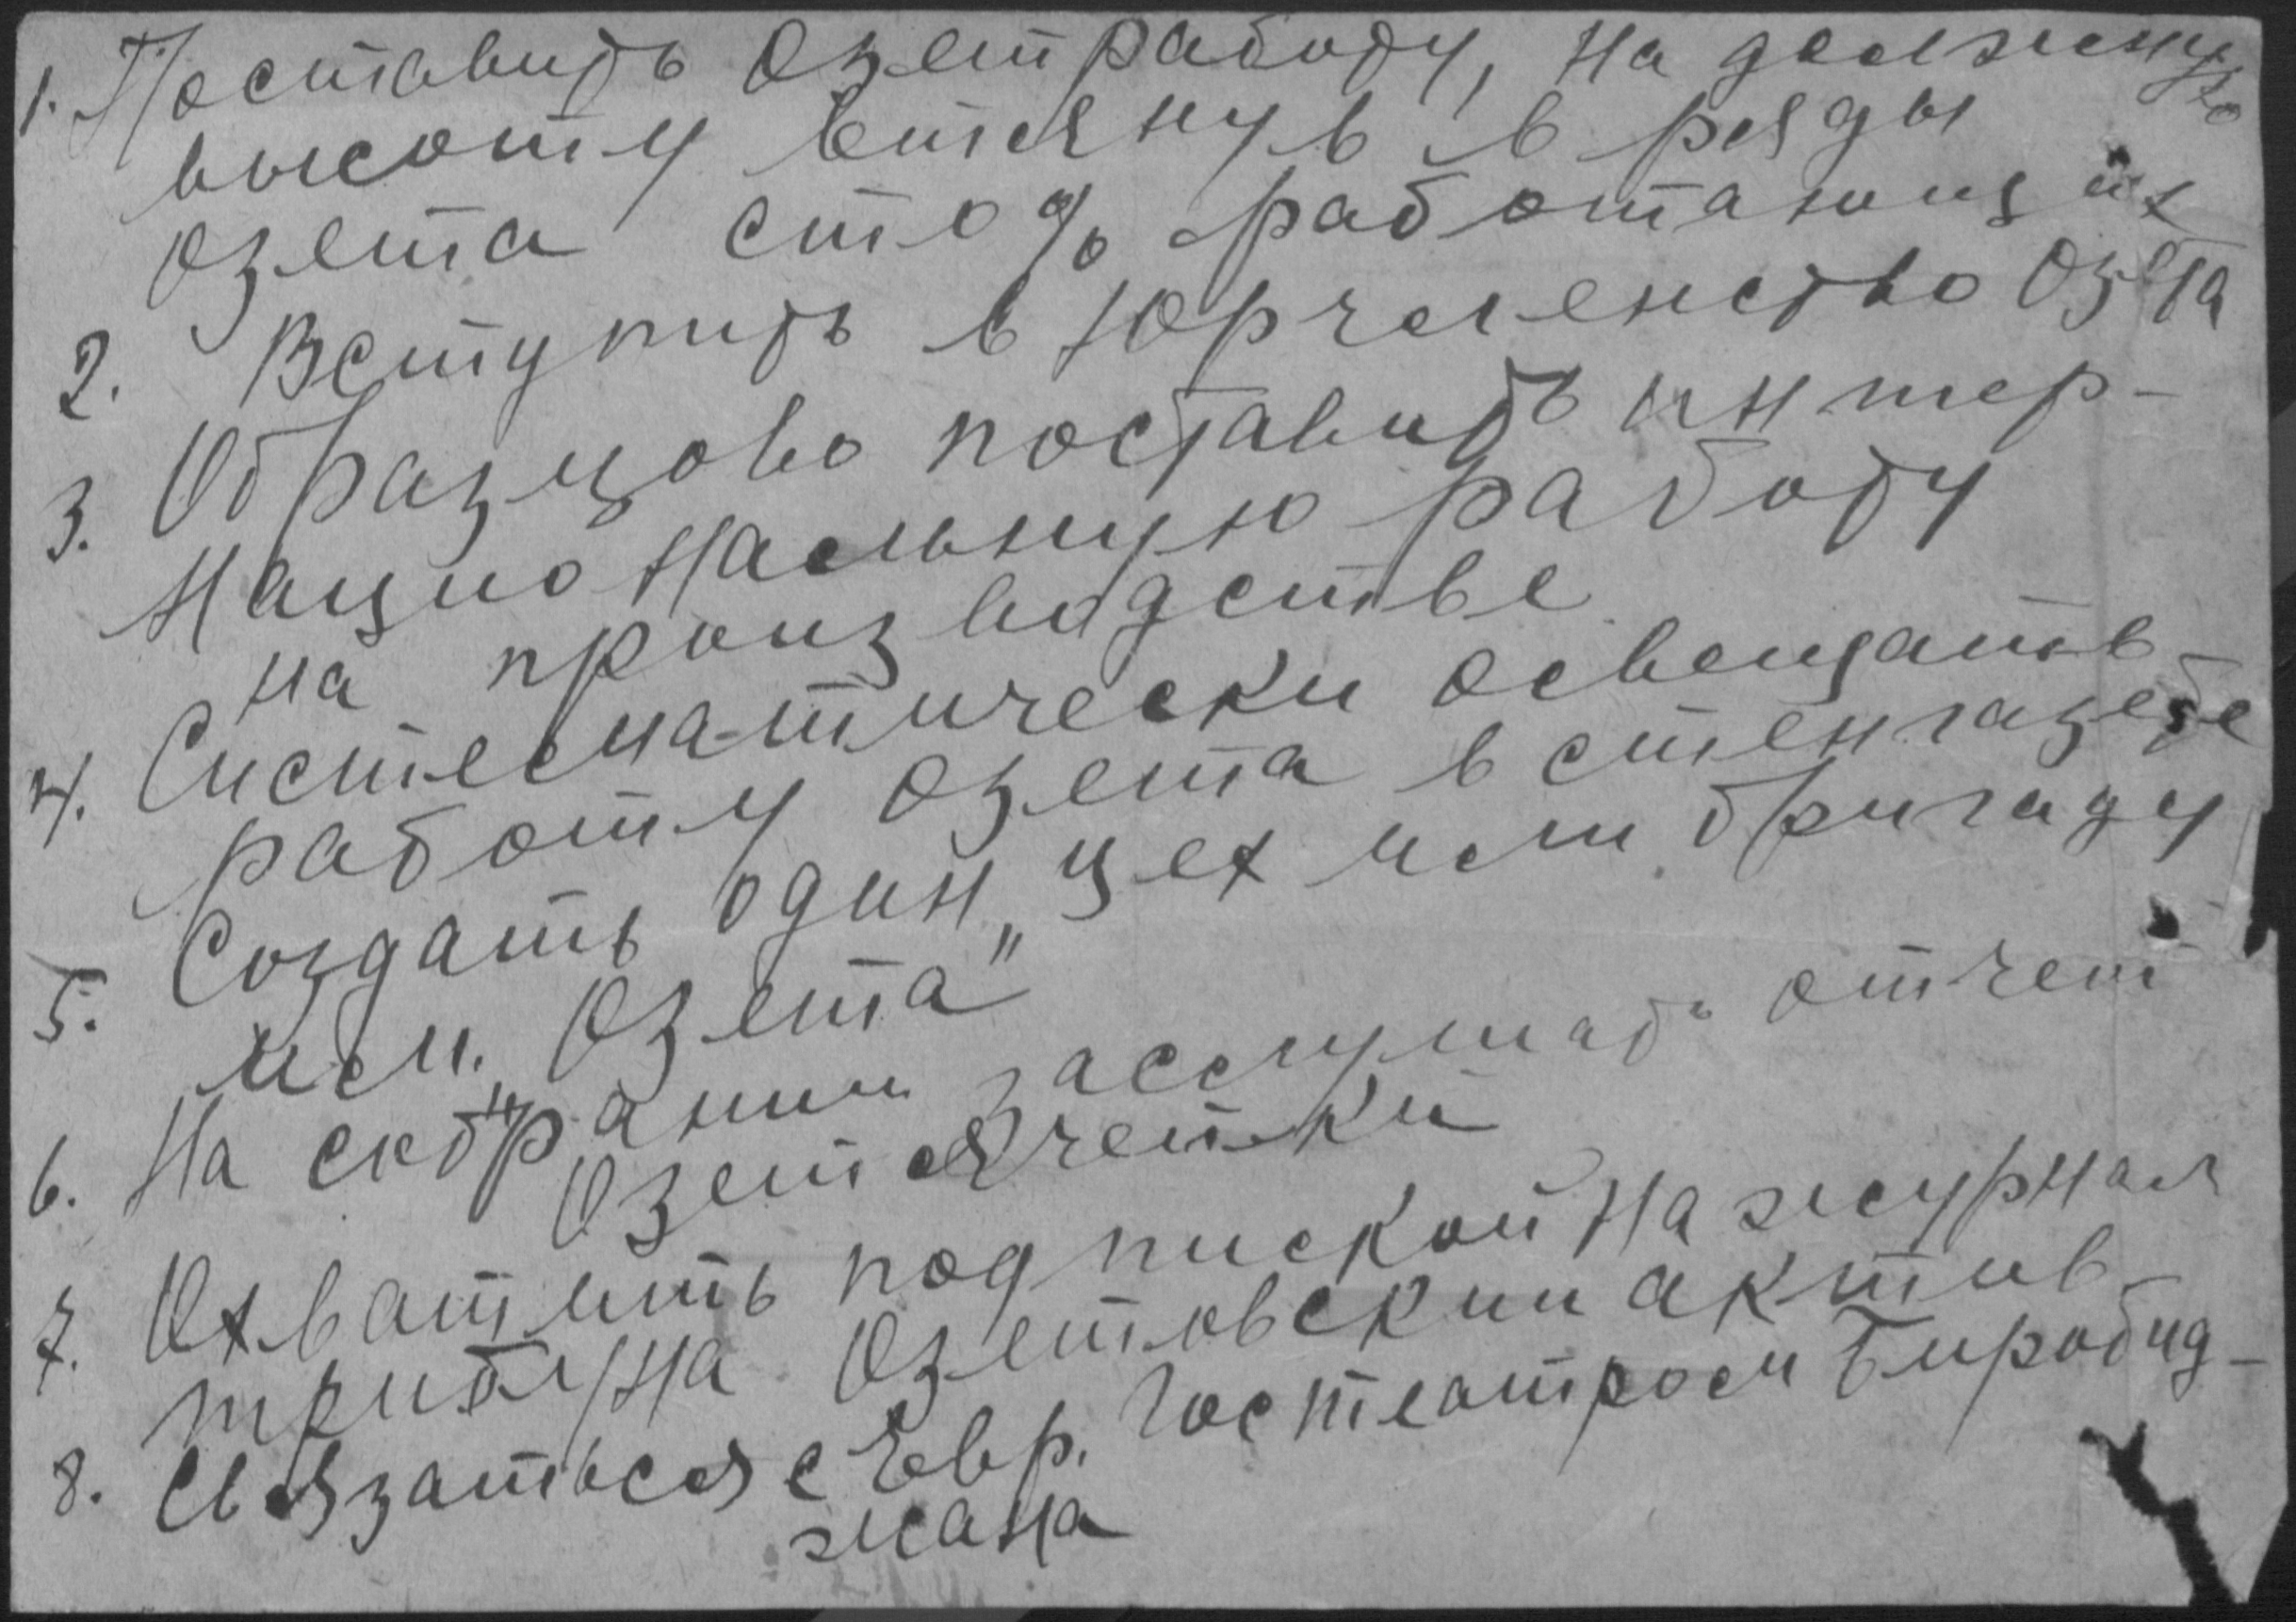 1. Поставить Озетработу, на должную
высоту втянув в ряды
Озета сто % работающих
2. Вступить в юрчленство Озета
3. Образцово поставить интер-
национальную работу
на производстве
4. Систематически освещать
работу Озета в стенгазете
5. Создать один „цех или бригаду
им. Озета"
6. На собрании заслушать отчет
Озетячейки
7. Охватить подпиской на журнал
трибуна Озетовский актив
8. Связаться с Евр. Гостеатром Биробид-
жана